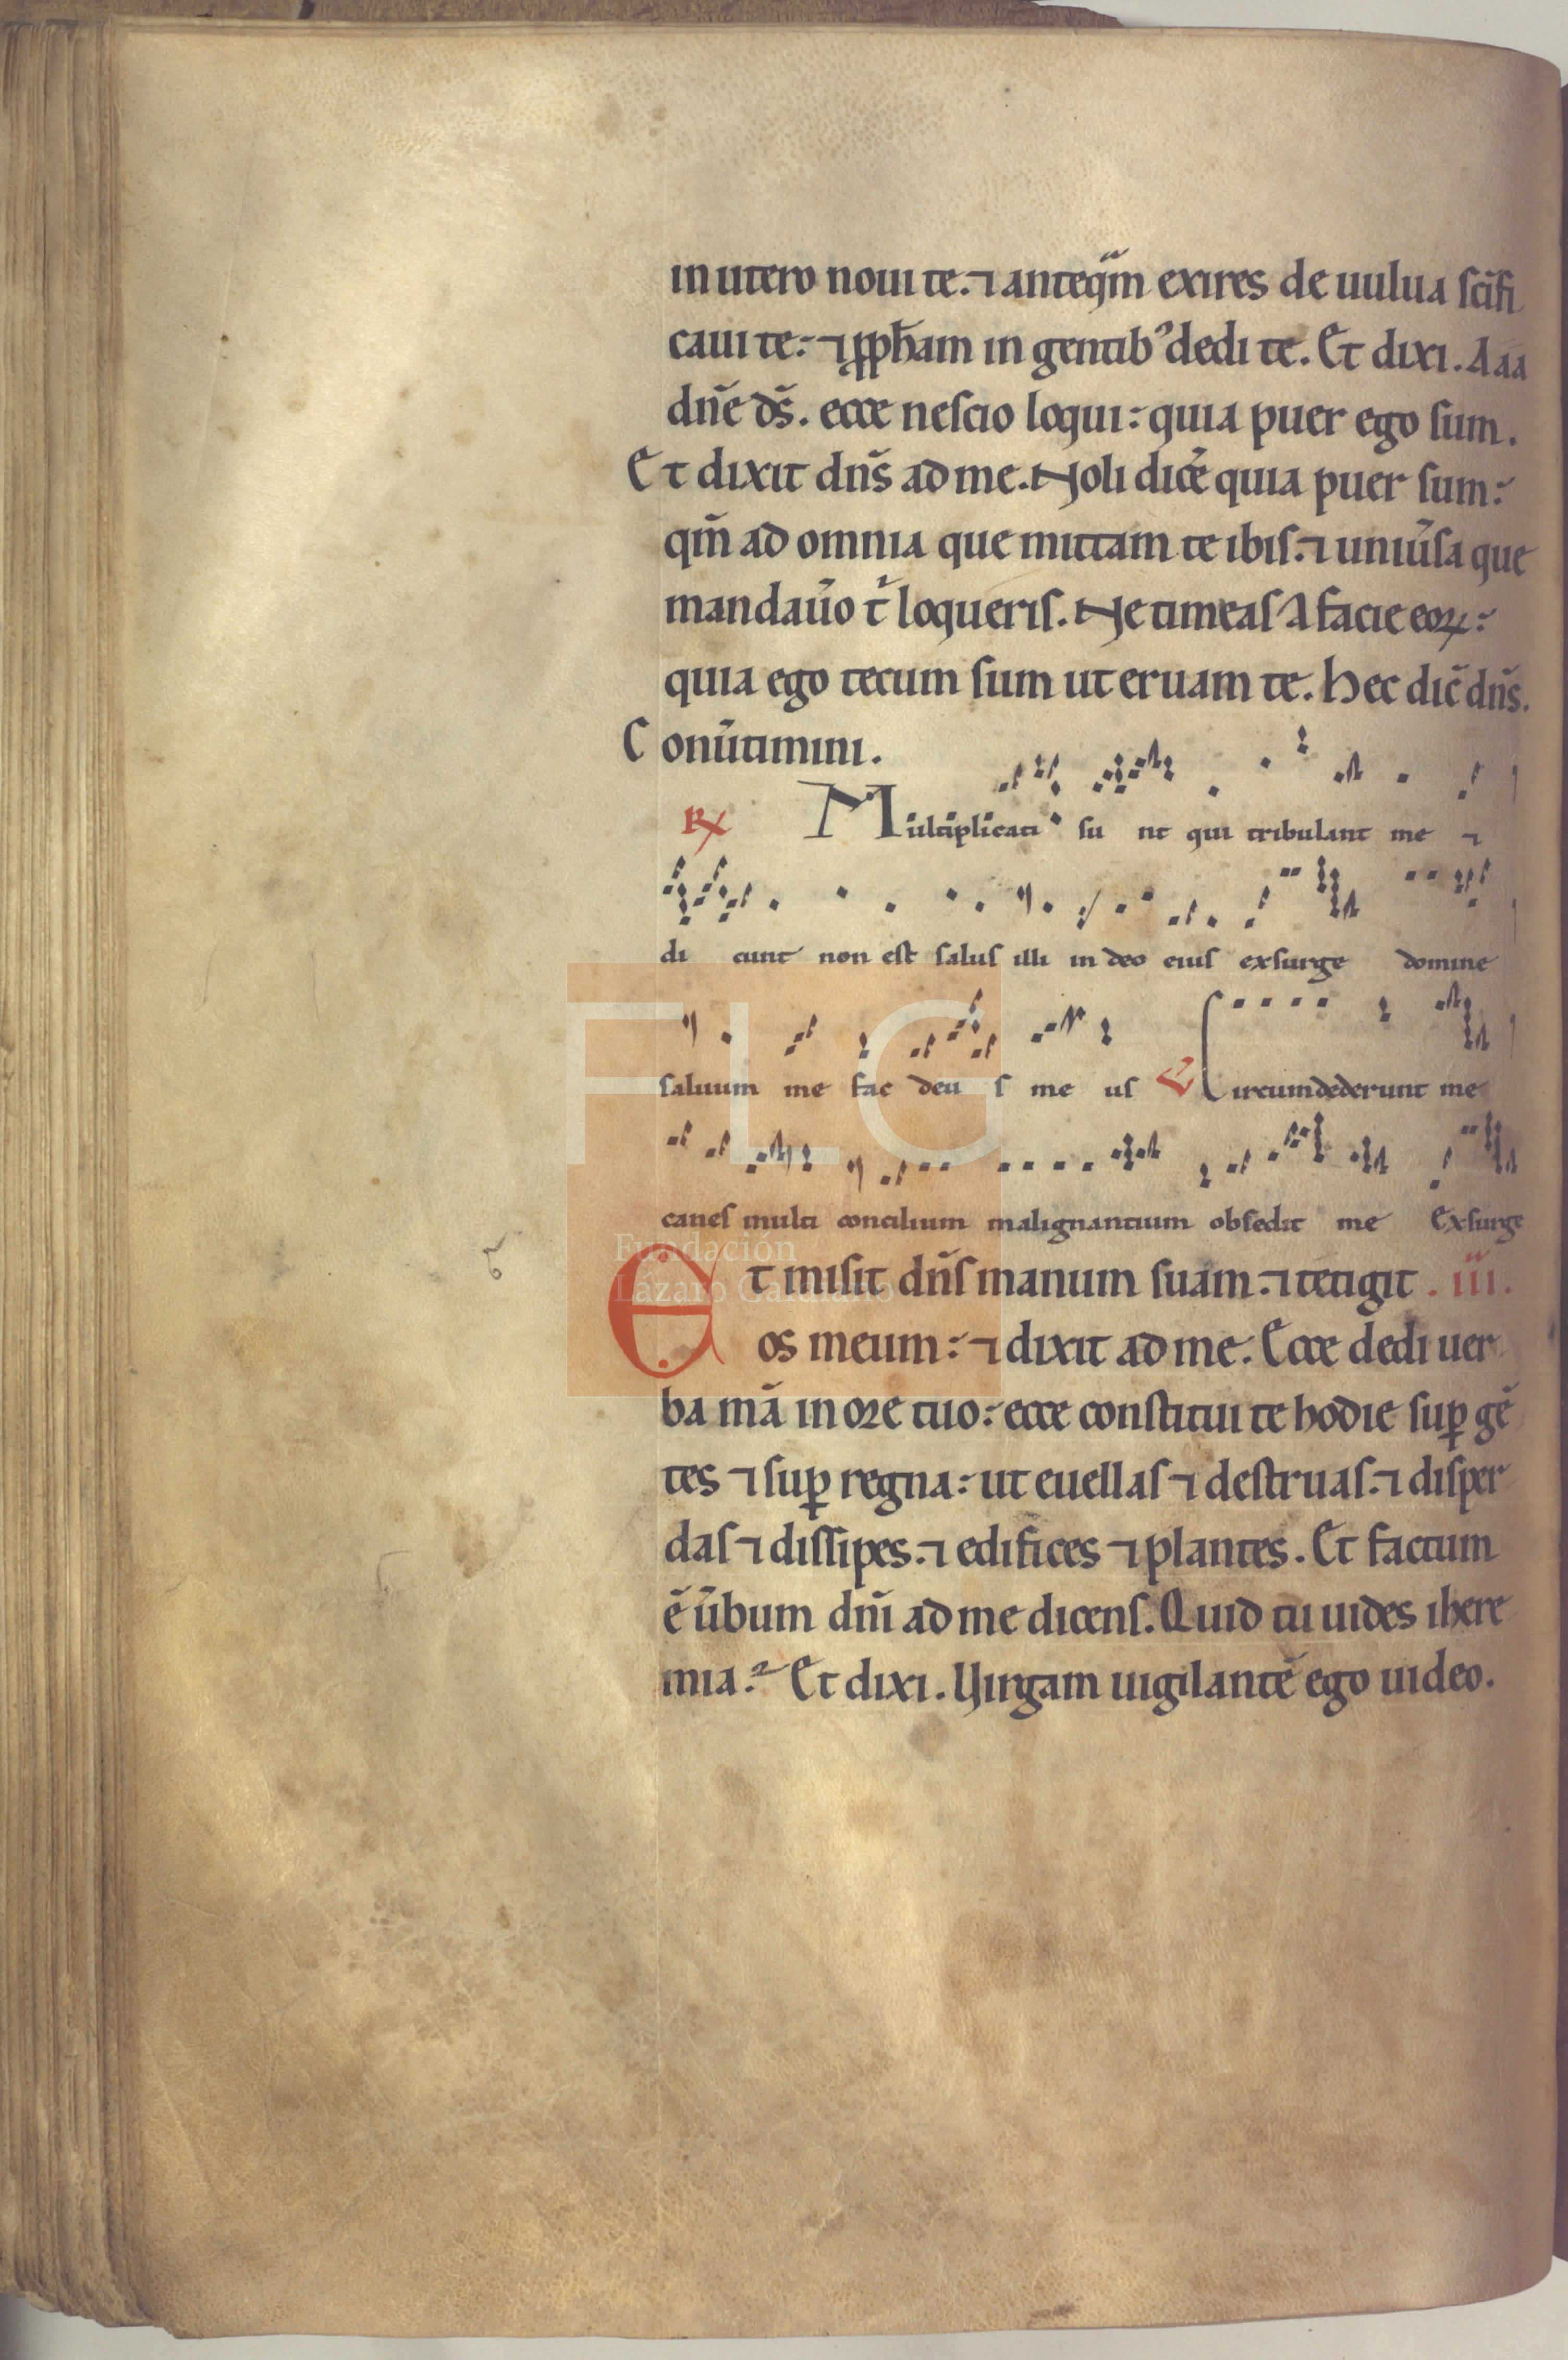 in utero noui te. ⁊ anteq̃m exires de uulua sc̃ifi
caui te: ⁊ ꝓph̃am in gentibꝰ dedi te. Et dixi. Aaa
dñe ds̃. ecce nescio loqui: quia puer ego sum.
Et dixit dñs ad me. Noli dicẽ quia puer sum:
qm̃ ad omnia que mittam te ibis. ⁊ uniũsa que
mandaũo t̾ loqueris. Ne timeas A facie eoꝝ:
quia ego tecum sum ut eruam te. Hec dic̃ dñs.
Conũtimini.
℟ Multiplicati su nt qui tribulant me ⁊
di cunt non est salus illi in deo eius exsurge domine
saluum me fac deu s me us ℣ Circumdederunt me
canes multi concilium malignantium obsedit me Exsurge
Et misit dñs manum suam. ⁊ tetigit .iii.
os meum: ⁊ dixit ad me. Ecce dedi uer
ba mã in ore tuo: ecce constitui te hodie suꝑ gẽ
tes ⁊ suꝑ regna: ut euellas ⁊ destruas. ⁊ disper
das ⁊ dissipes. ⁊ edifices ⁊ plantes. Et factum
ẽ ũbum dñi ad me dicens. Quid tu uides ihere
mia? Et dixi. Uirgam uigilantẽ ego uideo.
FLG
Fundación
Lázaro Galdiano